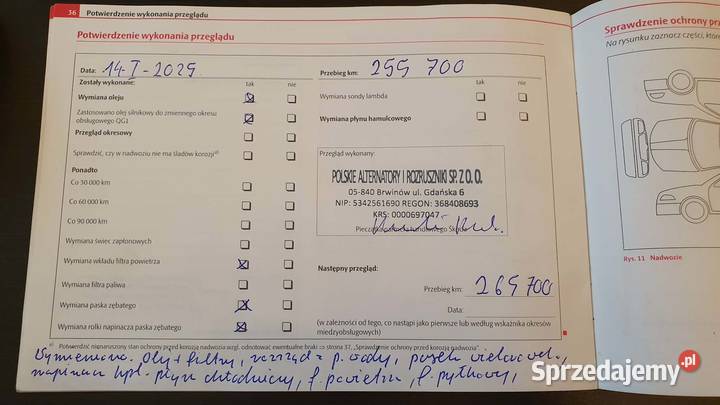 36 Potwierdzenie wykonania przeglądu
Potwierdzenie wykonania przeglądu
Data: 14-I-2025
Przebieg km: 255 700
Zostały wykonane:
tak nie
tak nie
Wymiana oleju
Wymiana sondy lambda
Zastosowano olej silnikowy do zmiennego okresu
obsługowego QG1
Wymiana płynu hamulcowego
Przegląd okresowy
Sprawdzić, czy w nadwoziu nie ma śladów korozji
Przegląd wykonany:
POLSKIE ALTERNATORY I ROZRUSZNIKI SP. Z O. O.
05-840 Brwinów ul. Gdańska 6
NIP: 5342561690 REGON: 368408693
KRS: 0000697047
Ponadto
Co 30 000 km
Co 60 000 km
Co 90 000 km
Wymiana świec zapłonowych
Wymiana wkładu filtra powietrza
Wymiana filtra paliwa
Wymiana paska zębatego
Wymiana rolki napinacza paska zębatego
Następny przegląd:
Przebieg km: 265 700
Data:
(w zależności od tego, co nastąpi jako pierwsze lub według wskaźnika okresów
międzyobsługowych)
a) Potwierdzić nienaruszony stan ochrony przed korozją nadwozia wzgl. odnotować ewentualne braki ⇒ strona 37, „Sprawdzenie ochrony przed korozją nadwozia”.
Wymieniono. olej + filtry, rozrząd z p. wody, pasek
napinacz kpl. płyn chłodniczy, f. powietrza, f. pyłkowy,
Sprawdzenie ochrony
Na rysunku zaznacz części,
Rys. 11 Nadwozie
Sprzedajemy.pl